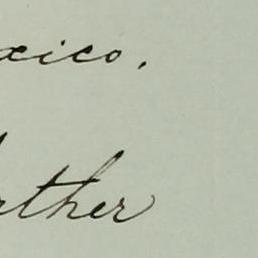 xico.
ather